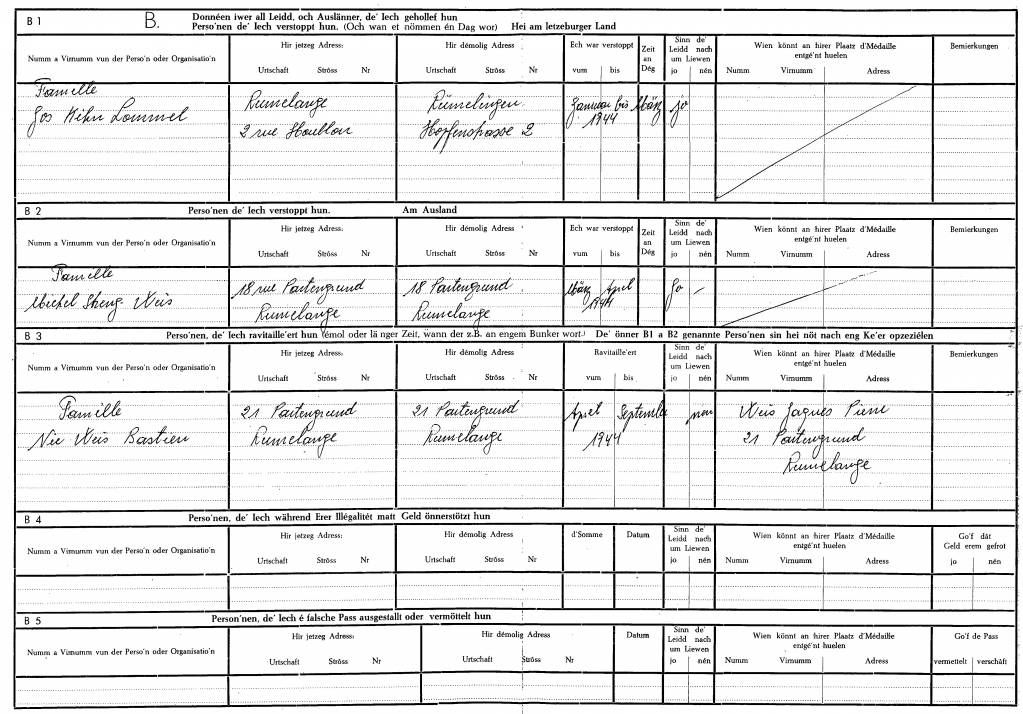 B 1 B. Donnéen iwer all Leidd, och Auslänner, de' Iech gehollef hun
Perso'nen de' Iech verstoppt hun. (Och wan et nömmen én Dag wor) Hei am letzeburger Land
Numm a Virnumm vun der Perso'n oder Organisatio'n
Hir jetzeg Adress:
Urtschaft Ströss Nr
Hir démolig Adress
Urtschaft Ströss Nr
Ech war verstoppt
vum bis
Zeit an Dég
Sinn de' Leidd nach um Liewen
jo nén
Wien könnt an hirer Plaatz d'Médaille entgé'nt huelen
Numm Virnumm Adress
Bemierkungen
Famille
Jos Kihn Lommel
Rumelange
2 rue Houblon
Rümelingen
Hopfenstrasse 2
Januar bis März
1944
jo
B 2 Perso'nen de' Iech verstoppt hun. Am Ausland
Numm a Virnumm vun der Perso'n oder Organisatio'n
Hir jetzeg Adress:
Urtschaft Ströss Nr
Hir démolig Adress
Urtschaft Ströss Nr
Ech war verstoppt
vum bis
Zeit an Dég
Sinn de' Leidd nach um Liewen
jo nén
Wien könnt an hirer Plaatz d'Médaille entgé'nt huelen
Numm Virnumm Adress
Bemierkungen
Famille
Michel Weis
18 rue Partengrund
Rumelange
18 Partengrund
Rumelange
März April
1944
Jo –
B 3 Perso'nen, de' Iech ravitaille'ert hun (émol oder länger Zeit, wann der z.B. an engem Bunker wort.) De' önner B1 a B2 genannte Perso'nen sin hei nöt nach eng Ke'er opzeziélen
Numm a Virnumm vun der Perso'n oder Organisatio'n
Hir jetzeg Adress:
Urtschaft Ströss Nr
Hir démolig Adress
Urtschaft Ströss Nr
Ravitaille'ert
vum bis
Sinn de' Leidd nach um Liewen
jo nén
Wien könnt an hirer Plaatz d'Médaille entgé'nt huelen
Numm Virnumm Adress
Bemierkungen
Famille
Nic Weis Bastien
21 Partengrund
Rumelange
21 Partengrund
Rumelange
April September
1944
non
Weis Jaques Pierre
21 Partengrund
Rumelange
B 4 Perso'nen, de' Iech während Erer Illégalitét matt Geld önnerstötzt hun
Numm a Virnumm vun der Perso'n oder Organisatio'n
Hir jetzeg Adress:
Urtschaft Ströss Nr
Hir démolig Adress
Urtschaft Ströss Nr
d'Somme
Datum
Sinn de' Leidd nach um Liewen
jo nén
Wien könnt an hirer Plaatz d'Médaille entgé'nt huelen
Numm Virnumm Adress
Go'f dât Geld erem gefrot
jo nén
B 5 Person'nen, de' Iech é falsche Pass ausgestallt oder vermöttelt hun
Numm a Virnumm vun der Perso'n oder Organisatio'n
Hir jetzeg Adress:
Urtschaft Ströss Nr
Hir démolig Adress
Urtschaft Ströss Nr
Datum
Sinn de' Leidd nach um Liewen
jo nén
Wien könnt an hirer Plaatz d'Médaille entgé'nt huelen
Numm Virnumm Adress
Go'f de Pass
vermettelt verschâft